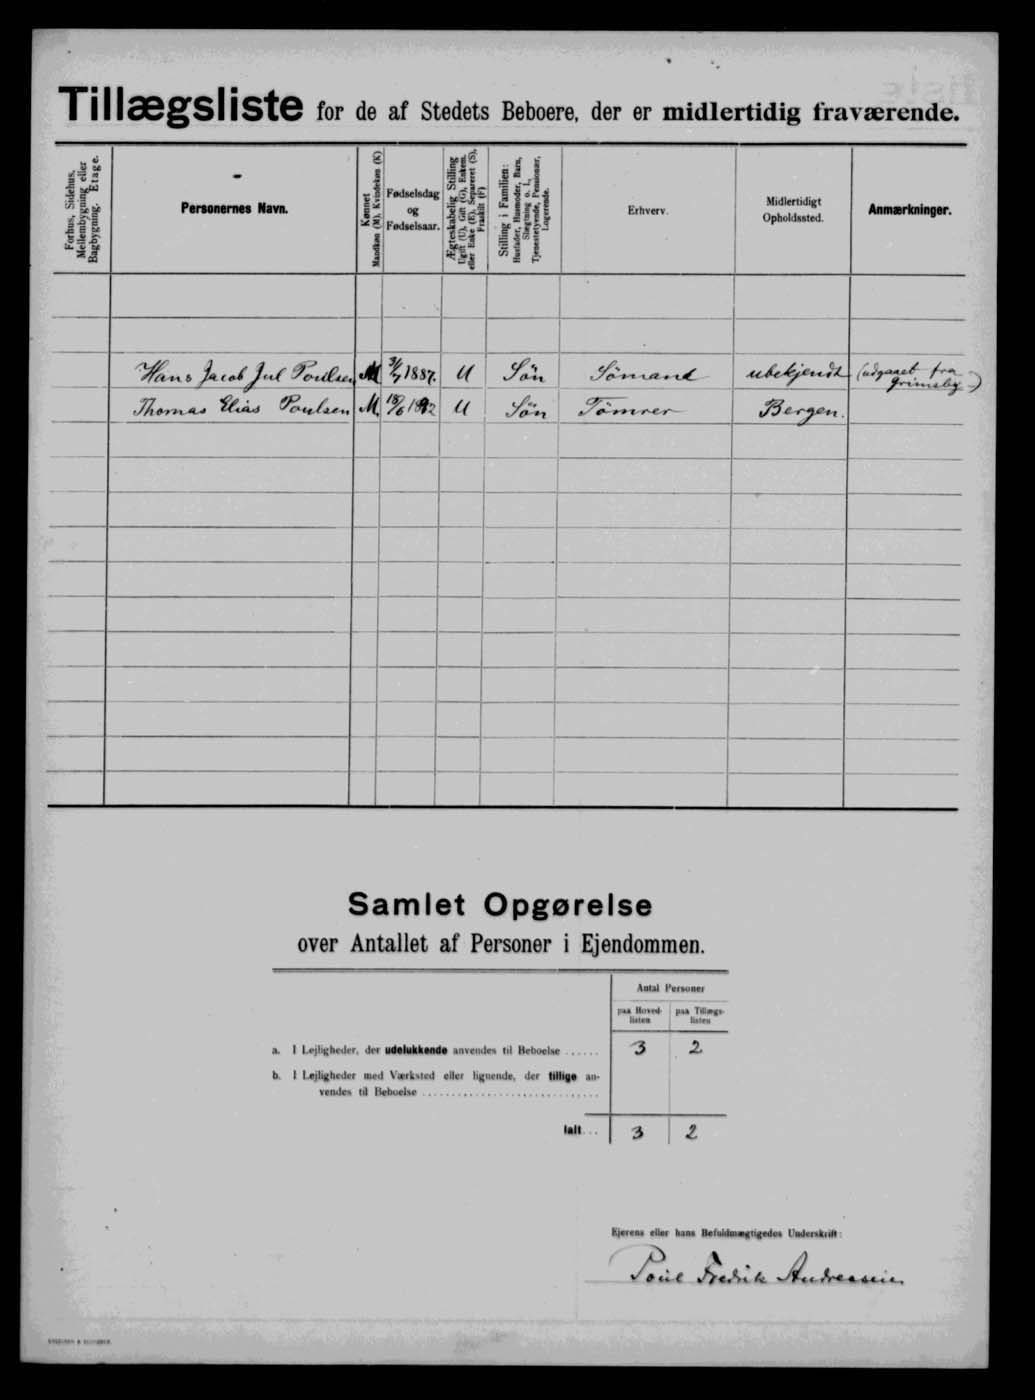 Tillægsliste for de af Stedets Beboere, der er midlertidig fraværende.
Forhus, Sidehus, Mellembygning eller Bagbygning. Etage.
Personernes Navn.
Kønnet Mandkøn (M), Kvindekøn (K)
Fødselsdag og Fødselsaar.
Ægteskabelig Stilling Ugift (U), Gift (G), Enkem. eller Enke (E), Separeret (S), Fraskilt (F)
Stilling i Familien: Husfader, Husmoder, Barn, Slægtning o. l., Tjenestetyende, Pensionær, Logerende.
Erhverv.
Midlertidigt Opholdssted.
Anmærkninger.
Hans Jacob Jul Poulsen M 31/7 1887. U Søn Sømand ubekjendt (udgaaet fra Grimsby)
Thomas Elias Poulsen M 18/6 1892 U Søn Tømrer Bergen.
Samlet Opgørelse
over Antallet af Personer i Ejendommen.
Antal Personer
paa Hoved-listen paa Tillægs-listen
a. I Lejligheder, der udelukkende anvendes til Beboelse ...... 3 2
b. I Lejligheder med Værksted eller lignende, der tillige an-
vendes til Beboelse ..............................
Ialt... 3 2
Ejerens eller hans Befuldmægtigedes Underskrift:
Poul Fredrik Andreassen